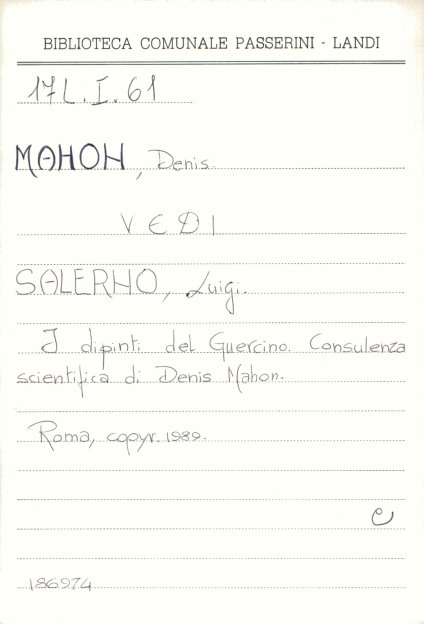 BIBLIOTECA COMUNALE PASSERINI - LANDI
17L.I.61
MAHON, Denis.
VEDI
SALERNO, Luigi.
I dipinti del Guercino. Consulenza
scientifica di Denis Mahon.
Roma, copyr. 1989.
e
186974